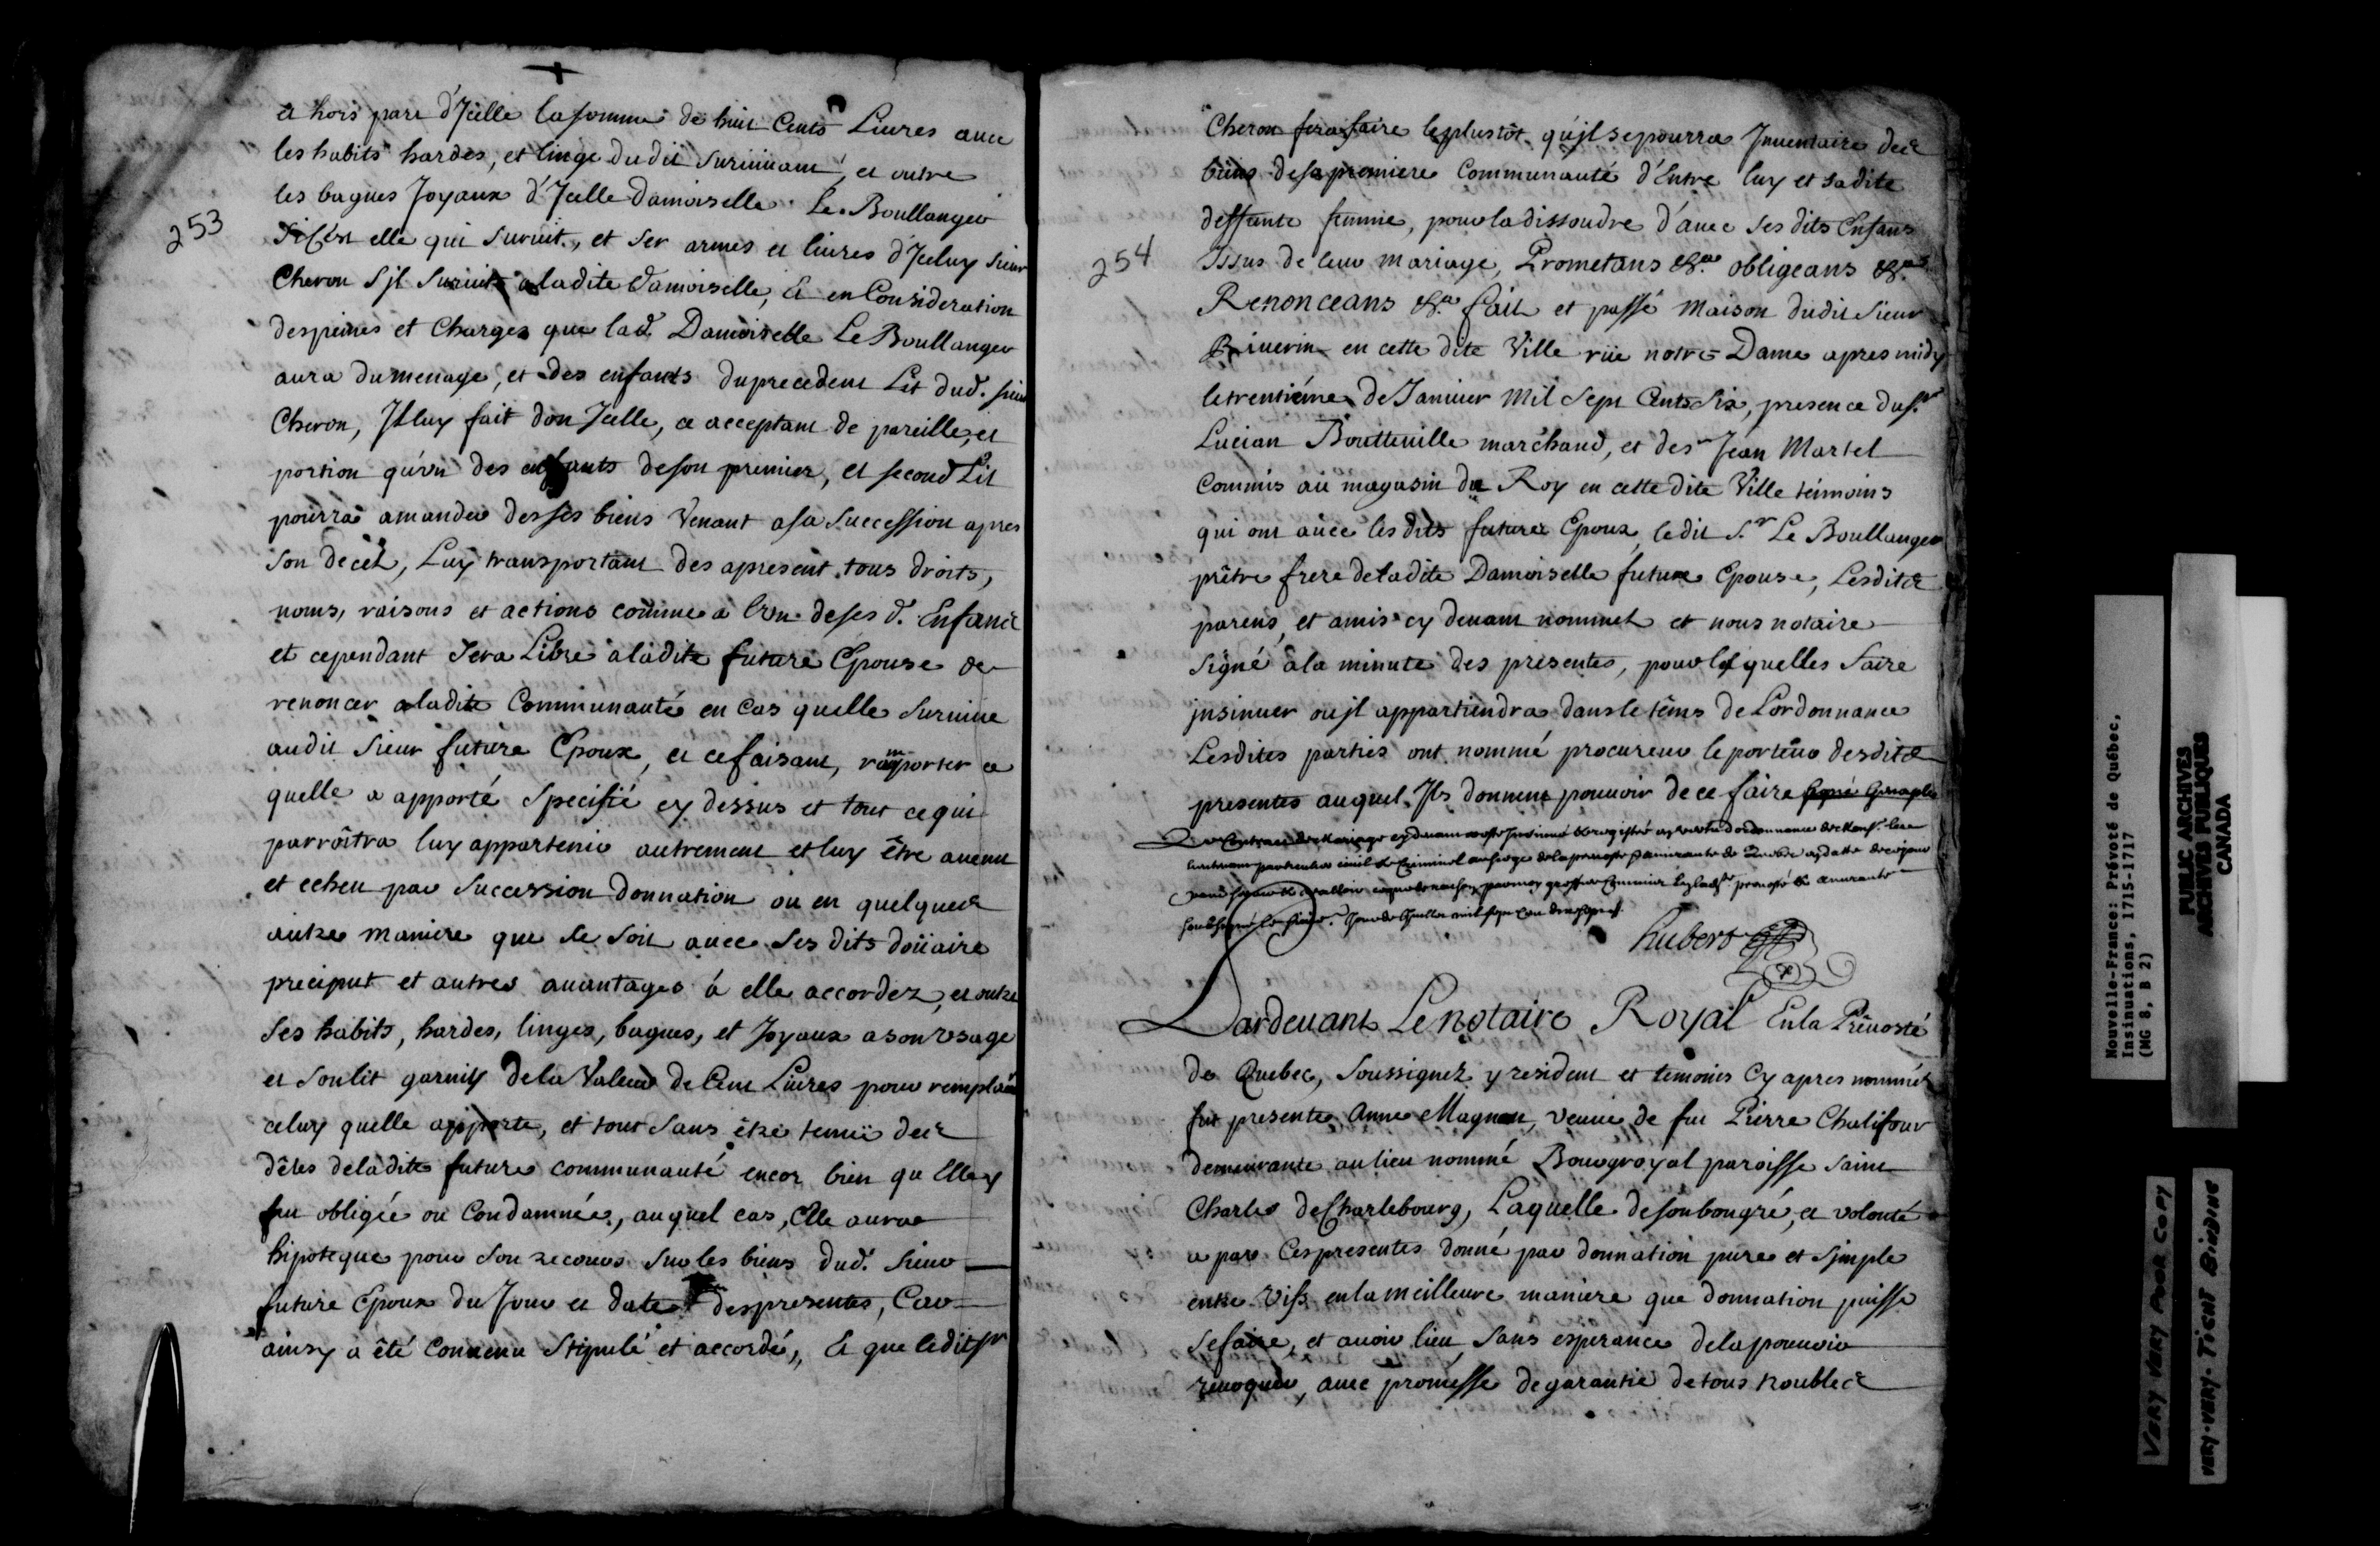 253
et hors part d'Jcelle la somme de huit Cents Liures auec
les habits hardes, et linge dudit suruiuant, et outre
les bagues Joyaux d'Jcelle Damoiselle Le Boullanger
si c'est elle qui suruit, et ses armes et liures d'Jceluy sieur
Cheron s'jl suruit a ladite Damoiselle, Et en Consideration
des peines et Charges que lad. Damoiselle Le Boullanger
aura du menage, et des enfants du precedent Lit dud. sieur
Cheron, Jl luy fait don Jcelle, ce acceptant de pareille, et
portion qu'un des enfants de son premier, et second Lit
pourra amander des ses biens venant a sa succession apres
son decet, Luy transportant des apresent tous droits,
noms, raisons et actions comme a l'vn de ses d. Enfants
et cependant sera Libre a ladite future Epouse de
renoncer a ladite Communauté en cas quelle suruiue
audit sieur future Epoux, et ce faisant, remporter ce
quelle a apporté specifié cy dessus et tout ce qui
parroîtra luy appartenir autrement et luy être auenu
et echeu par succession donnation ou en quelques
autre maniere que se soit auec ses dits doüaire
preciput et autres auantages á elle accordez, et outre
ses habits, hardes, linges, bagues, et Joyaux a son vsage
et son lit garnis de la Valeur de Cent Liures pour remplacer
celuy quelle apporte, et tout sans être tenuë des
dêtes de ladite future communauté encor bien qu'Elle y
fut obligée ou Condamnée, auquel cas, Elle aura
hipoteque pour son recours sur les biens dud. sieur
future Epoux du Jour et date des presentes, Car
ainsy a êté conuenu stipulé et accordé, Et que ledit sr
254
Cheron fera faire le plustôt qu'jl se pourra Jnuentaire des
biens de sa premiere Communauté d'Entre luy et sadite
deffunte femme, pour la dissoudre d'auec ses dits Enfans
Issus de leur mariage, Prometans &a. obligeans &a.
Renonceans &a. fait et passé maison dudit sieur
Riuerin en cette dite Ville rüe notre Dame apres midy
le trentiéme de Januier mil sept Cents six, presence du sr.
Lucian Boutteuille marchand, et de sr Jean Martel
Commis au magasin du Roy en cette dite Ville témoins
qui ont auec les dits future Epoux, ledit S.r Le Boullanger
prêtre frere de ladite Damoiselle future Epouse, Lesdits
parens, et amis cy deuant nommet et nous notaire
signé a la minute des presentes, pour lesquelles faire
jnsinuer ou jl appartiendra dans le têms de L'ordonnance
Lesdites parties ont nommé procureur le porteur desdites
presentes auquel Jls donnent pouuoir de ce faire
Le Contract de Mariage cy deuant a esté Jnsinué & registré en vertu d'ordonnance de Mons.r le
lieutenant particulier ciuil & Criminel au siege de la preuosté & amirauté de Quebec en datte de ce jour
pour seruir & valloir ce que de raison par moy greffier Commis en lad.te preuosté & amirauté
soubsigné le jour de Juillet mil sept Cent
hubert
Pardeuant Le notaire Royal En la Préuosté
de Quebec, soussignez y resident et témoins Cy apres nommés
fut presente Anne Magnan, veuue de feu Pierre Chalifour
demeurante au lieu nommé Bourgroyal paroisse saint
Charles de Charlebourg, Laquelle de son bon gré, et volonté
a par Ces presentes donné par donnation pure et simple
entre vifs, en la meilleure maniere que donnation puisse
se faire, et auoir lieu sans esperance de la pouuoir
reuoquer, auec promesse de garantie de tous troubles
Nouvelle-France: Prévoté de Québec,
Insinuations, 1715-1717
(MG 8, B 2)
PUBLIC ARCHIVES
ARCHIVES PUBLIQUES
CANADA
VERY VERY POOR COPY
VERY-VERY-TIGHT BINDING